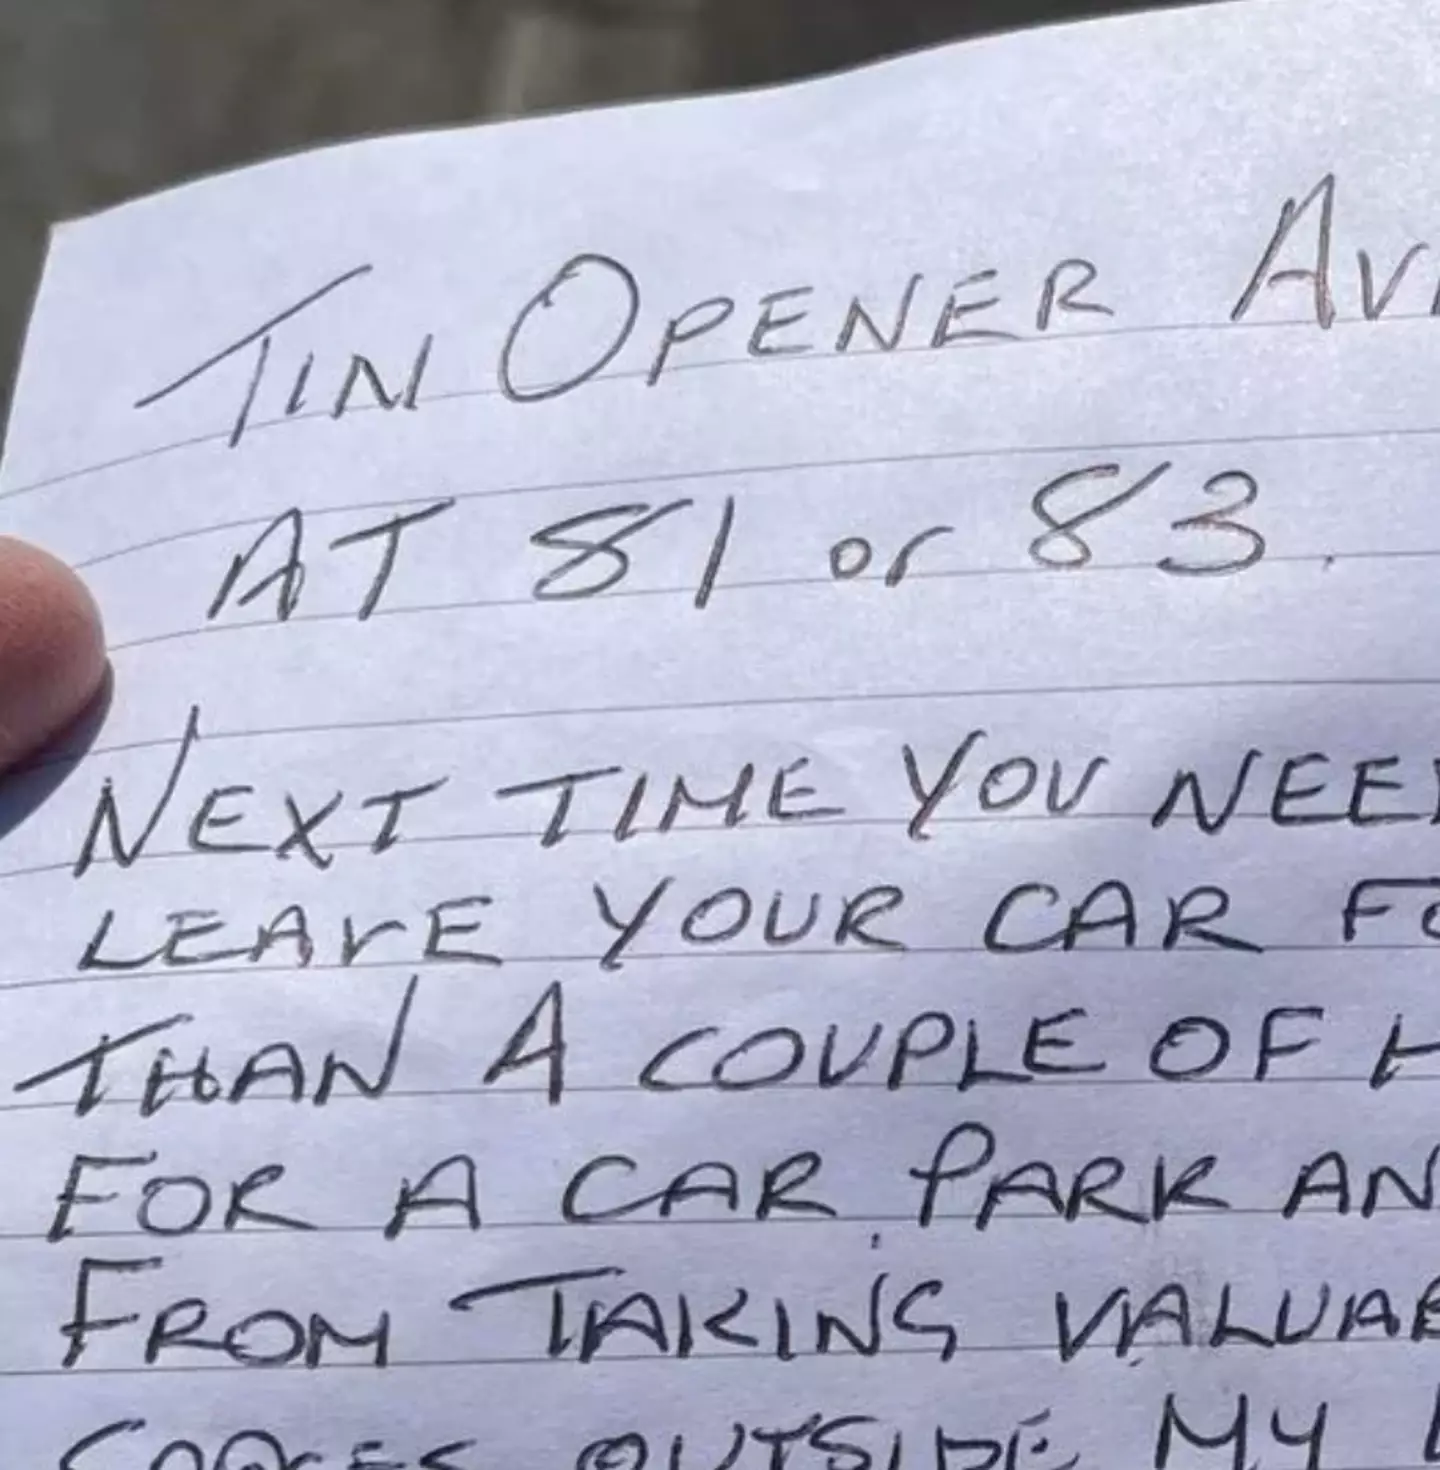 TIN OPENER AV
AT 81 or 83.
NEXT TIME YOU NEED
LEAVE YOUR CAR FO
THAN A COUPLE OF H
FOR A CAR PARK AN
FROM TAKING VALUAB
SPACES OUTSIDE MY